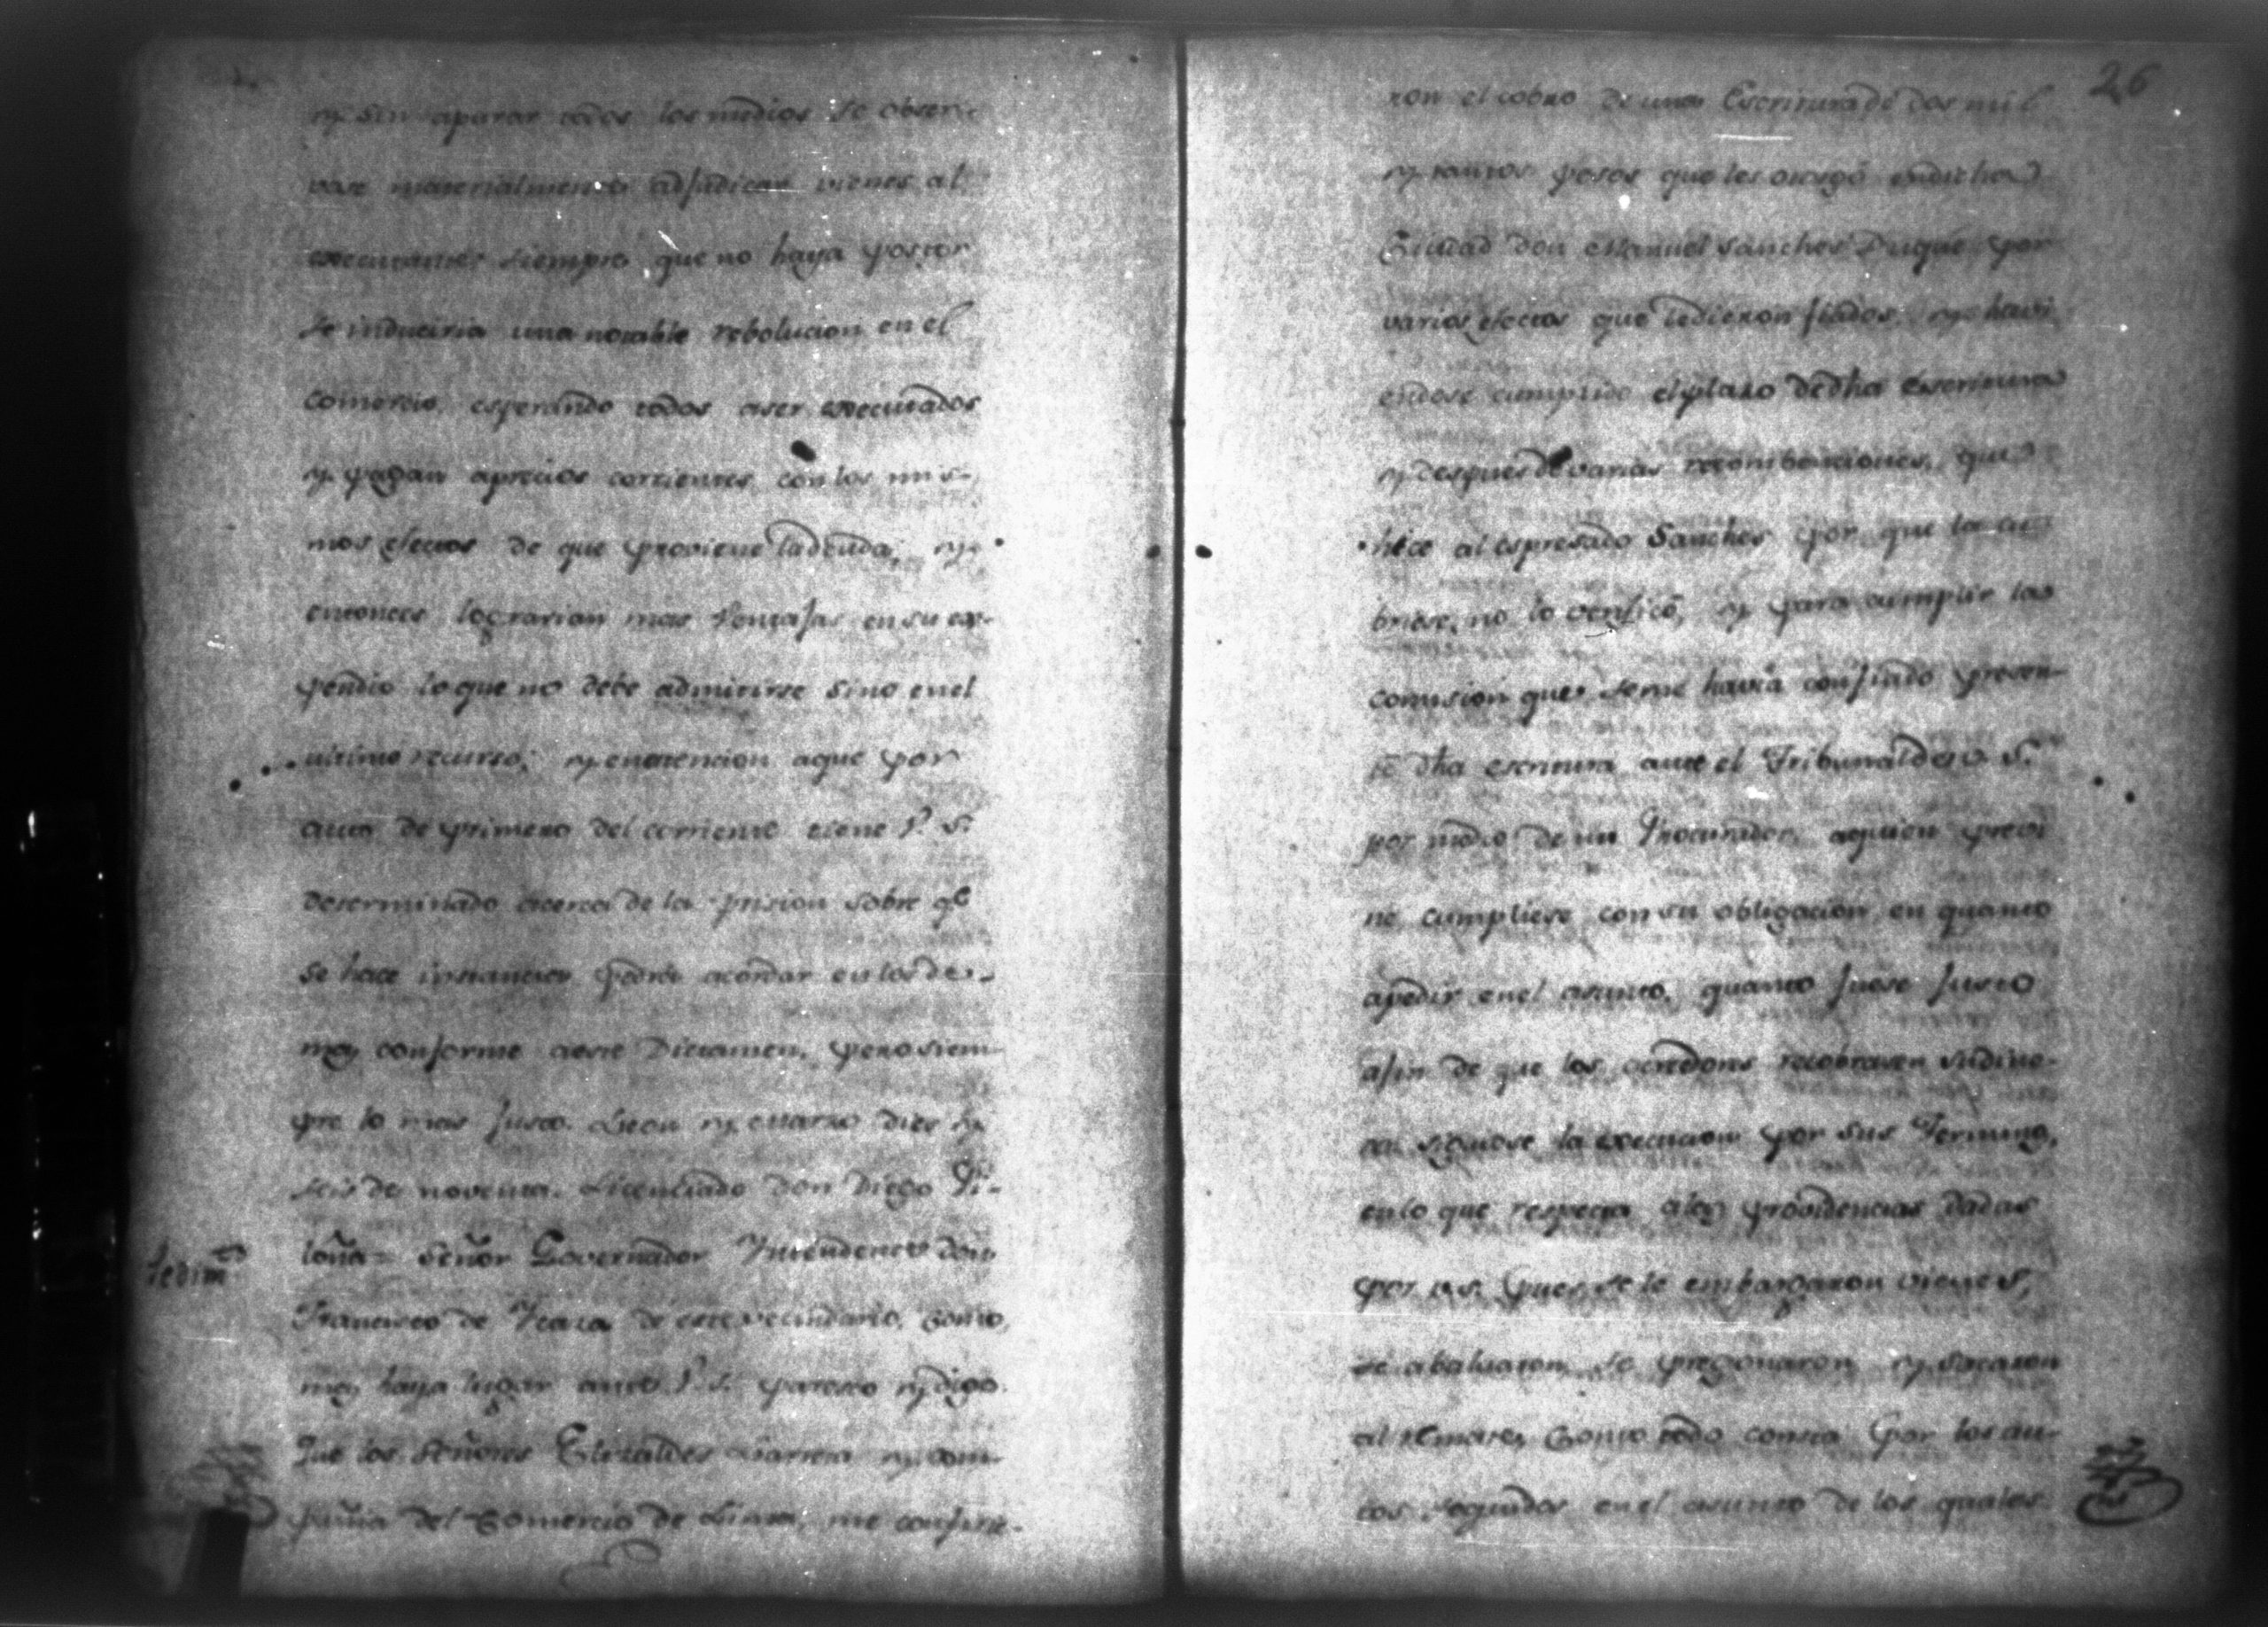 y sin apurar todos los medios se obser-
vase materialmente adjudicar vienes al
executante siempre que no haya postor
se induciria una notable rebolucion en el
comercio, esperando todos a ser executados
y pagan aprecios corrientes con los mis-
mos efectos de que proviene la deuda; y
entonces lograrian mas ventajas en su ex-
pendio lo que no debe admitirse sino en el
ultimo recurso; y en atencion aque por
auto de primero del corriente tiene V. S.
determinado acerca de la prision sobre qe
se hace instancia podrá acordar en los de-
mas conforme a este Dictamen, pero siem-
pre lo mas justo. Leon y Marzo dies y
seis de noventa. Licenciado don Diego Pi-
loña = Señor Governador Yntendente don
Pedimto
Francisco de Ycaza de este vecindario, como
mas haya lugar ante V. S. paresco y digo.
Que los señores Elizaldes Larrea y com-
pañia del Comercio de Lima, me confirie-
26
ron el cobro de una Escritura de dos mil
y tantos pesos que les otorgó en dicha
Ciudad don Manuel Sanches Duque por
varios efectos que le dieron fiados, y havi
endose cumplido el plazo de dha escritura
y despues de varias recombenciones, que
hice al espresado Sanches por que la cu-
briese, no lo verificó, y para cumplir las
comision que se me havia confiado presen-
té dha escritura ante el Tribunal de V. S.
por medio de un Procurador, a quien previ
ne cumpliese con su obligacion en quanto
apedir en el asunto, quanto fuese justo
afin de que los acredores recobrasen su dine-
ro. Siguose la execucion por sus Terminos,
en lo que respecta alas providencias dadas
por V. S. pues se le embargaron vienes,
se abaluaron, se pregonaron y sacaron
al remate, como todo consta por los au-
tos seguidos en el asunto de los quales